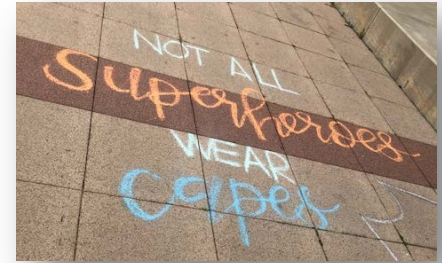 NOT ALL
Superheroes
WEAR
capes